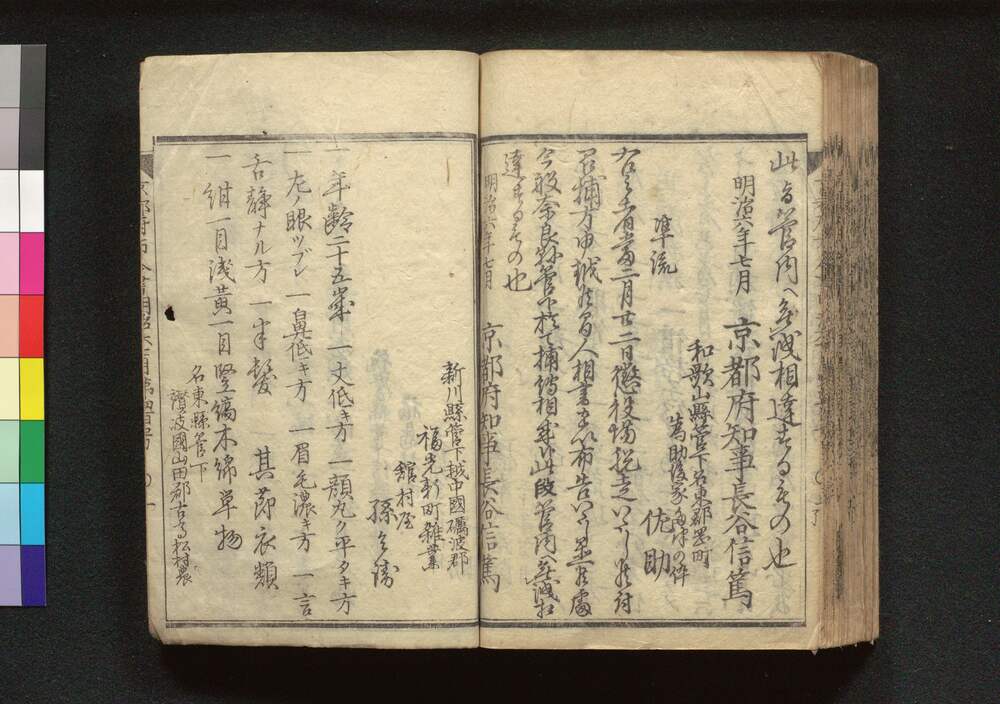 此旨管内ヘ無洩相達するもの也
明治六年七月 京都府知事長谷信篤
和歌山縣管下名東郡黒町
為助後家の伜
佐助
準流
右之者當二月廿二日懲役場脱走いたし候付
召捕方申越候間人相書を以布告いたし置候處
今般奈良縣管下於て捕縛相成候此段管内ヘ無洩相
達するもの也
明治六年七月 京都府知事長谷信篤
新川縣管下越中國礪波郡
福光新町雑業
舘村屋
孫
一年齢二十五歳 一丈低キ方 一顔丸ク平タキ方
一左ノ眼ツブレ 一鼻低キ方 一眉毛濃キ方 一言
舌静ナル方 一半髪 其節衣類
一紺一目浅黄一目竪縞木綿単物
名東縣管下
讃波國山田郡古高松村農